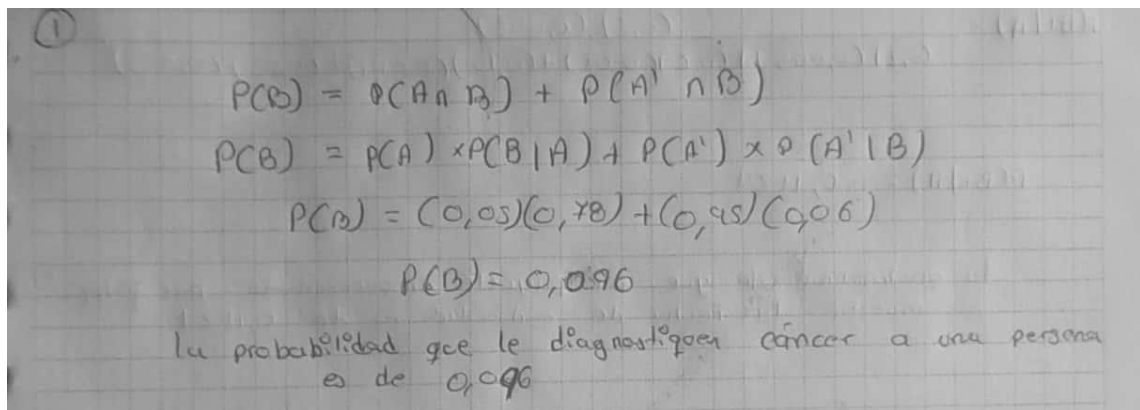 ①
P(B) = P(A∩B) + P(A' ∩ B)
P(B) = P(A) × P(B|A) + P(A') × P(A'|B)
P(B) = (0,05)(0,78) + (0,95)(0,06)
P(B) = 0,096
la probabilidad que le diagnostiquen cáncer a una persona
es de 0,096